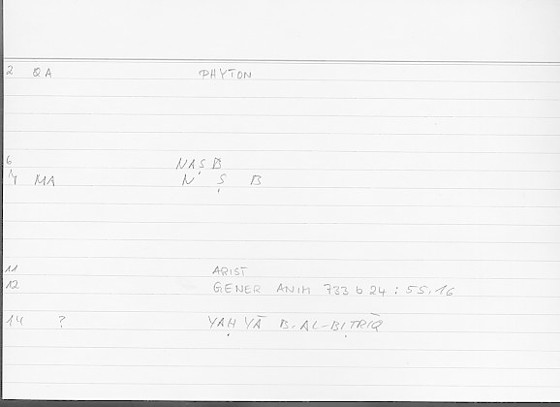 2 QA PHYTON
6 NAṢB
7 MA N Ṣ B
11 ARIST
12 GENER ANIM 733 b 24 : 55.16
14 ? YAḤYĀ B. AL-BIṬRĪQ